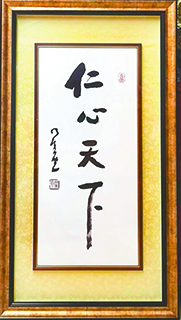 仁心天下